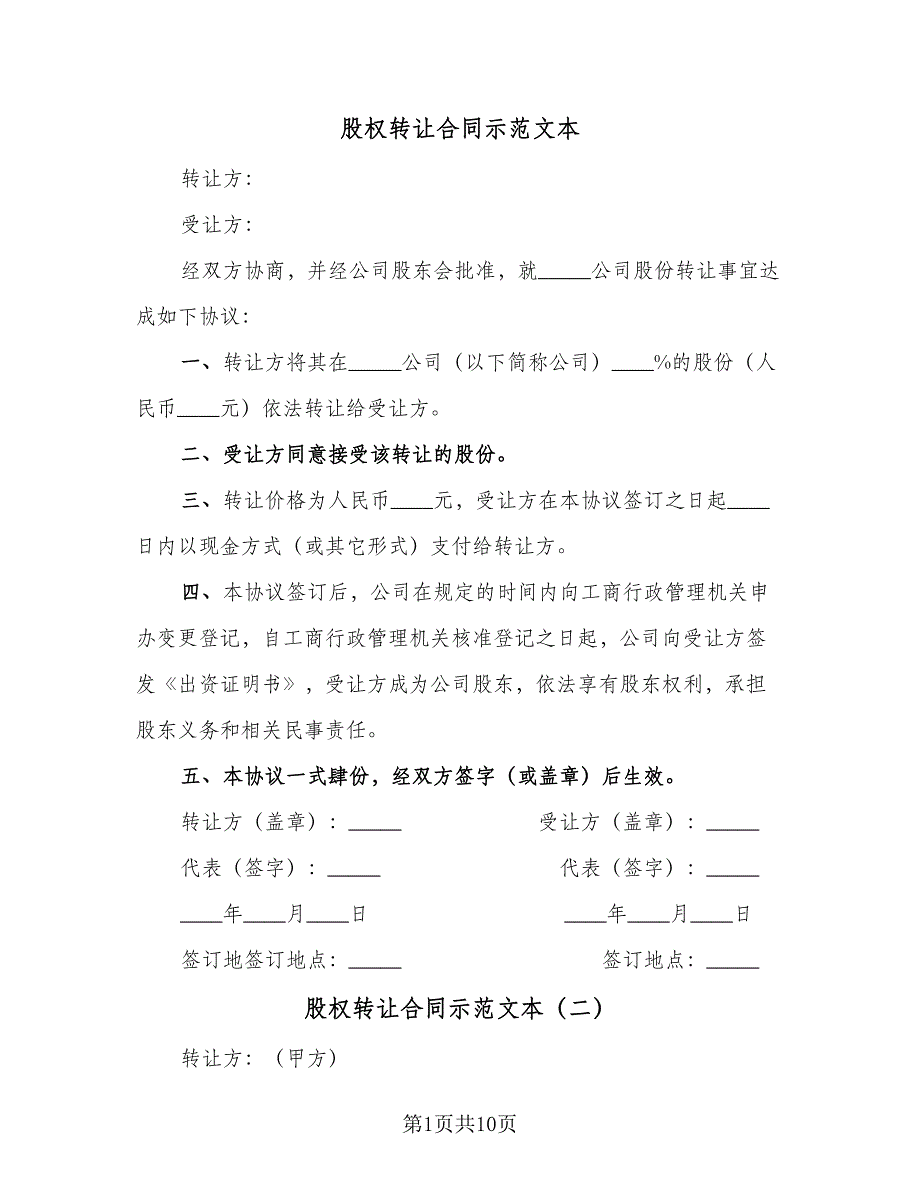 股权转让合同示范文本
转让方：
受让方：
经双方协商，并经公司股东会批准，就_____公司股份转让事宜达
成如下协议：
一、转让方将其在_____公司（以下简称公司）____%的股份（人
民币____元）依法转让给受让方。
二、受让方同意接受该转让的股份。
三、转让价格为人民币____元，受让方在本协议签订之日起____
日内以现金方式（或其它形式）支付给转让方。
四、本协议签订后，公司在规定的时间内向工商行政管理机关申
办变更登记，自工商行政管理机关核准登记之日起，公司向受让方签
发《出资证明书》，受让方成为公司股东，依法享有股东权利，承担
股东义务和相关民事责任。
五、本协议一式肆份，经双方签字（或盖章）后生效。
转让方（盖章）：_____ 受让方（盖章）：_____
代表（签字）：_____ 代表（签字）：_____
____年____月____日 ____年____月____日
签订地签订地点：_____ 签订地点：_____
股权转让合同示范文本（二）
转让方：（甲方）
第1页共10页